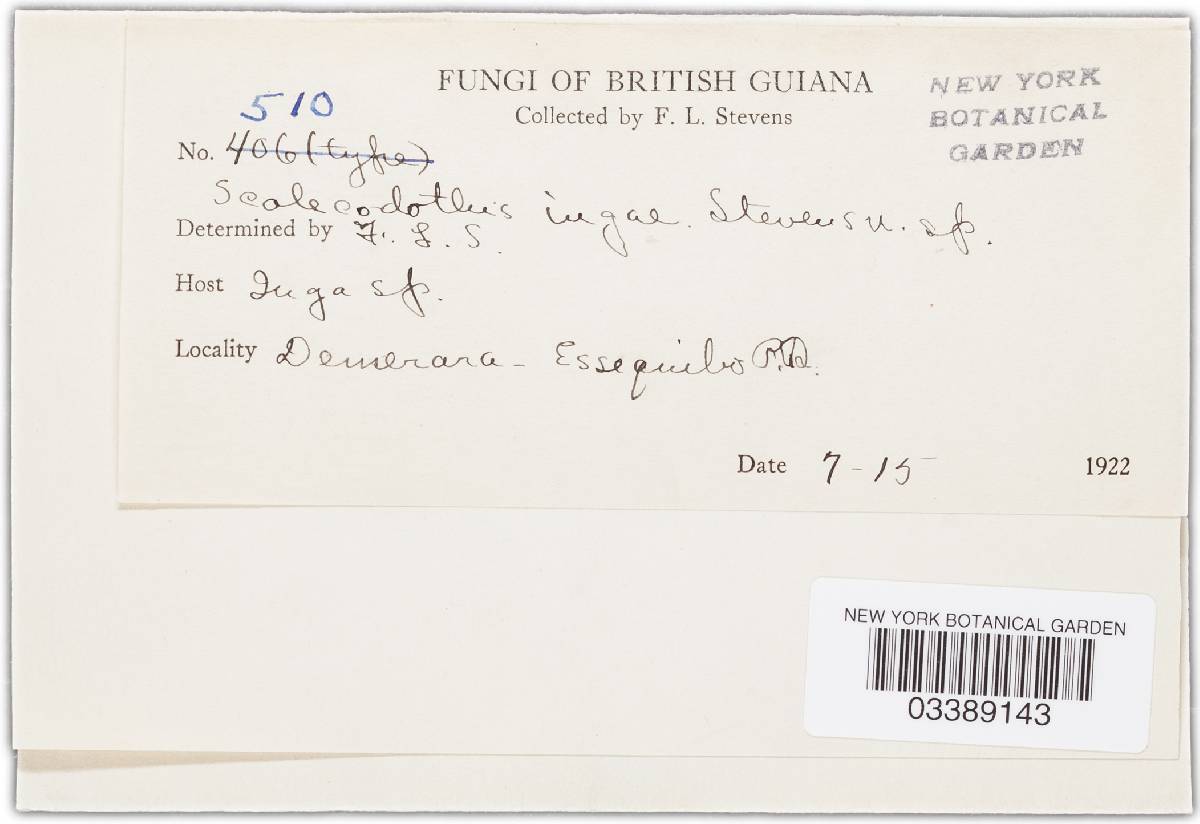 FUNGI OF BRITISH GUIANA
Collected by F. L. Stevens
NEW YORK
BOTANICAL
GARDEN
510
No. 406 (type)
Scolecodothis ingae. Stevens n. sp.
Determined by F. L. S.
Host Inga sp.
Locality Demerara - Essequibo R.R.
Date 7-15 1922
NEW YORK BOTANICAL GARDEN
03389143